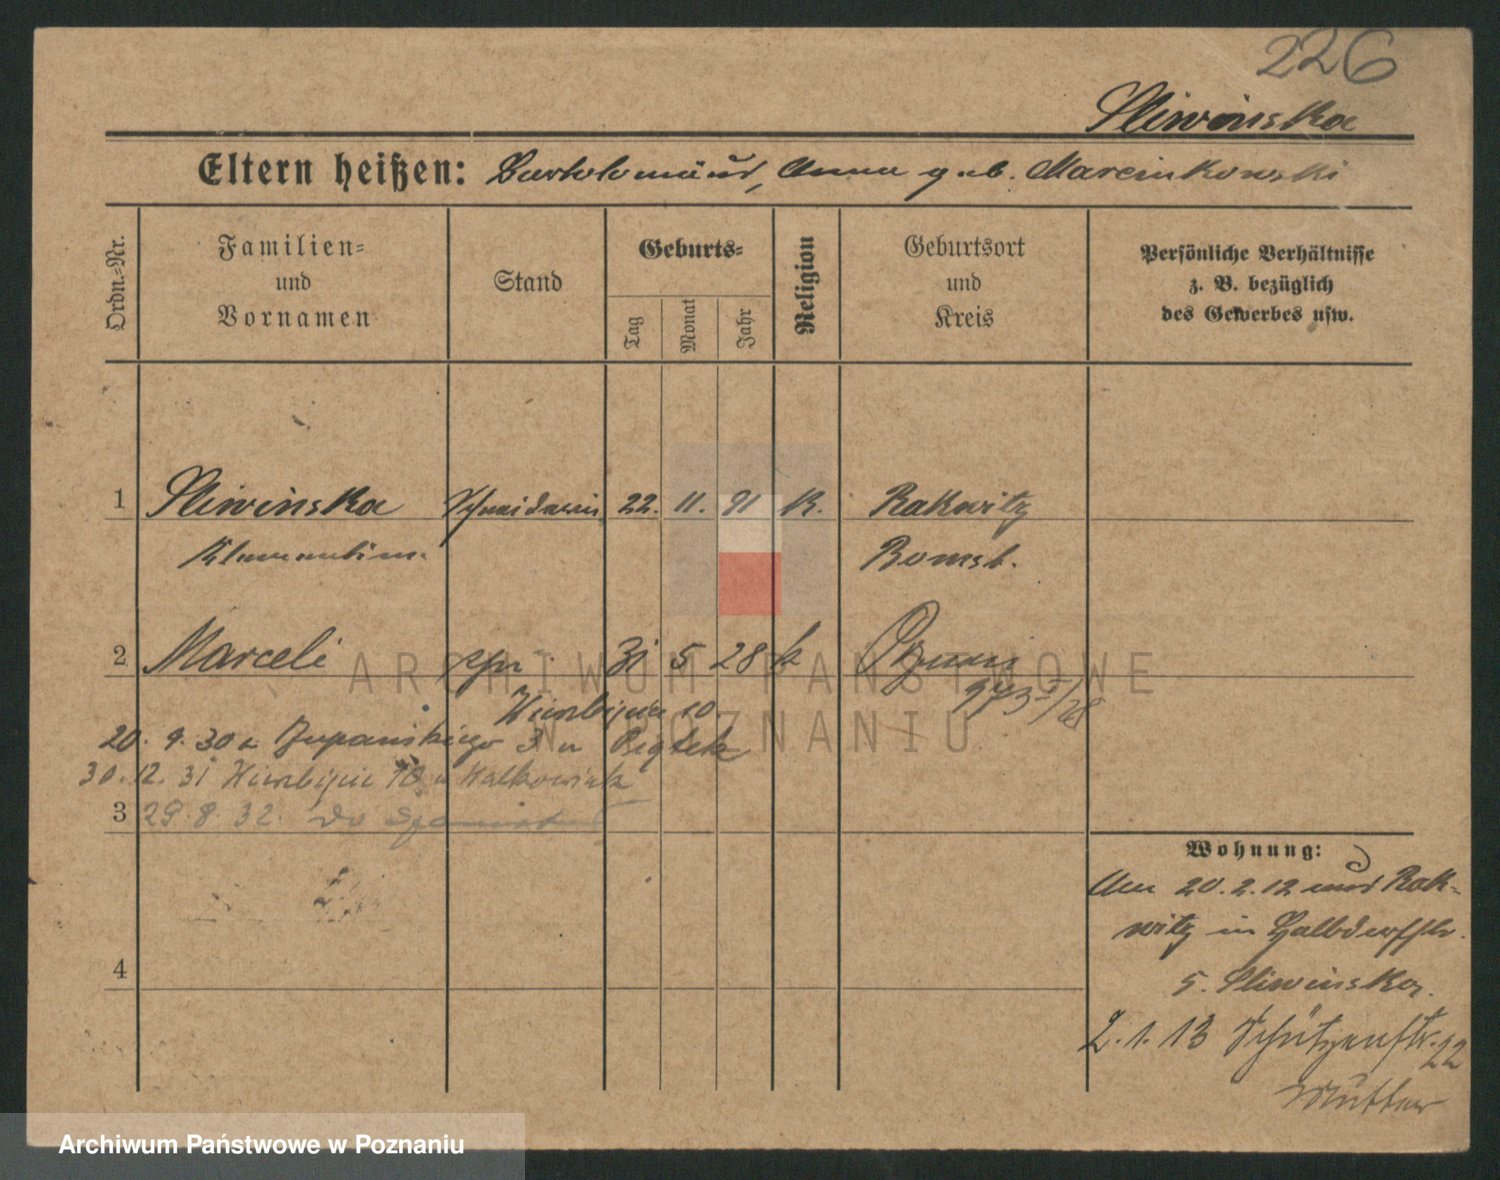 226
Sliwinska
Eltern heißen: Bartolomäus, Anna geb. Marcinkowski
Ordn.=Nr.
Familien= und Vornamen
Stand
Geburts=
Tag
Monat
Jahr
Religion
Geburtsort und Kreis
Persönliche Verhältnisse z. B. bezüglich des Gewerbes usw.
1 Sliwinska Schneiderin 22. 11. 91 K. Rakwitz
Klementine Bomst.
2 Marceli 31 5 28 k
ARCHIWUM PAŃSTWOWE
W POZNANIU
Wierzbięcice 10
20. 9. 30 Żupańskiego 3 u Piątek
30. 12. 31 Wierzbięcice u Walkowiak
3 29. 8. 32. do
4
Wohnung:
Am 20.2.12 aus Rak-
witz in Halbdorfstr.
5. Sliwinska.
2. 1. 13 Schützenstr. 22
Mutter
Archiwum Państwowe w Poznaniu